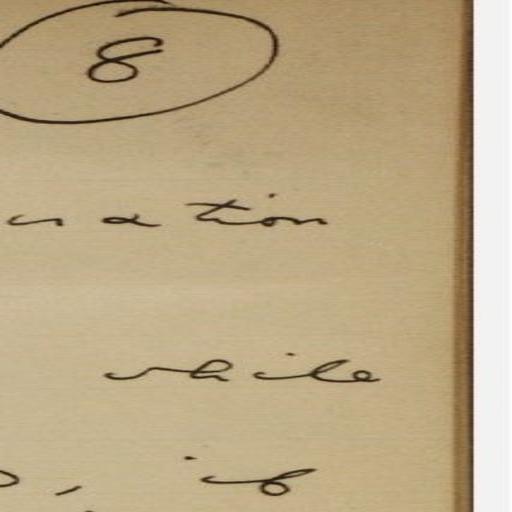 8
nation
while
, if